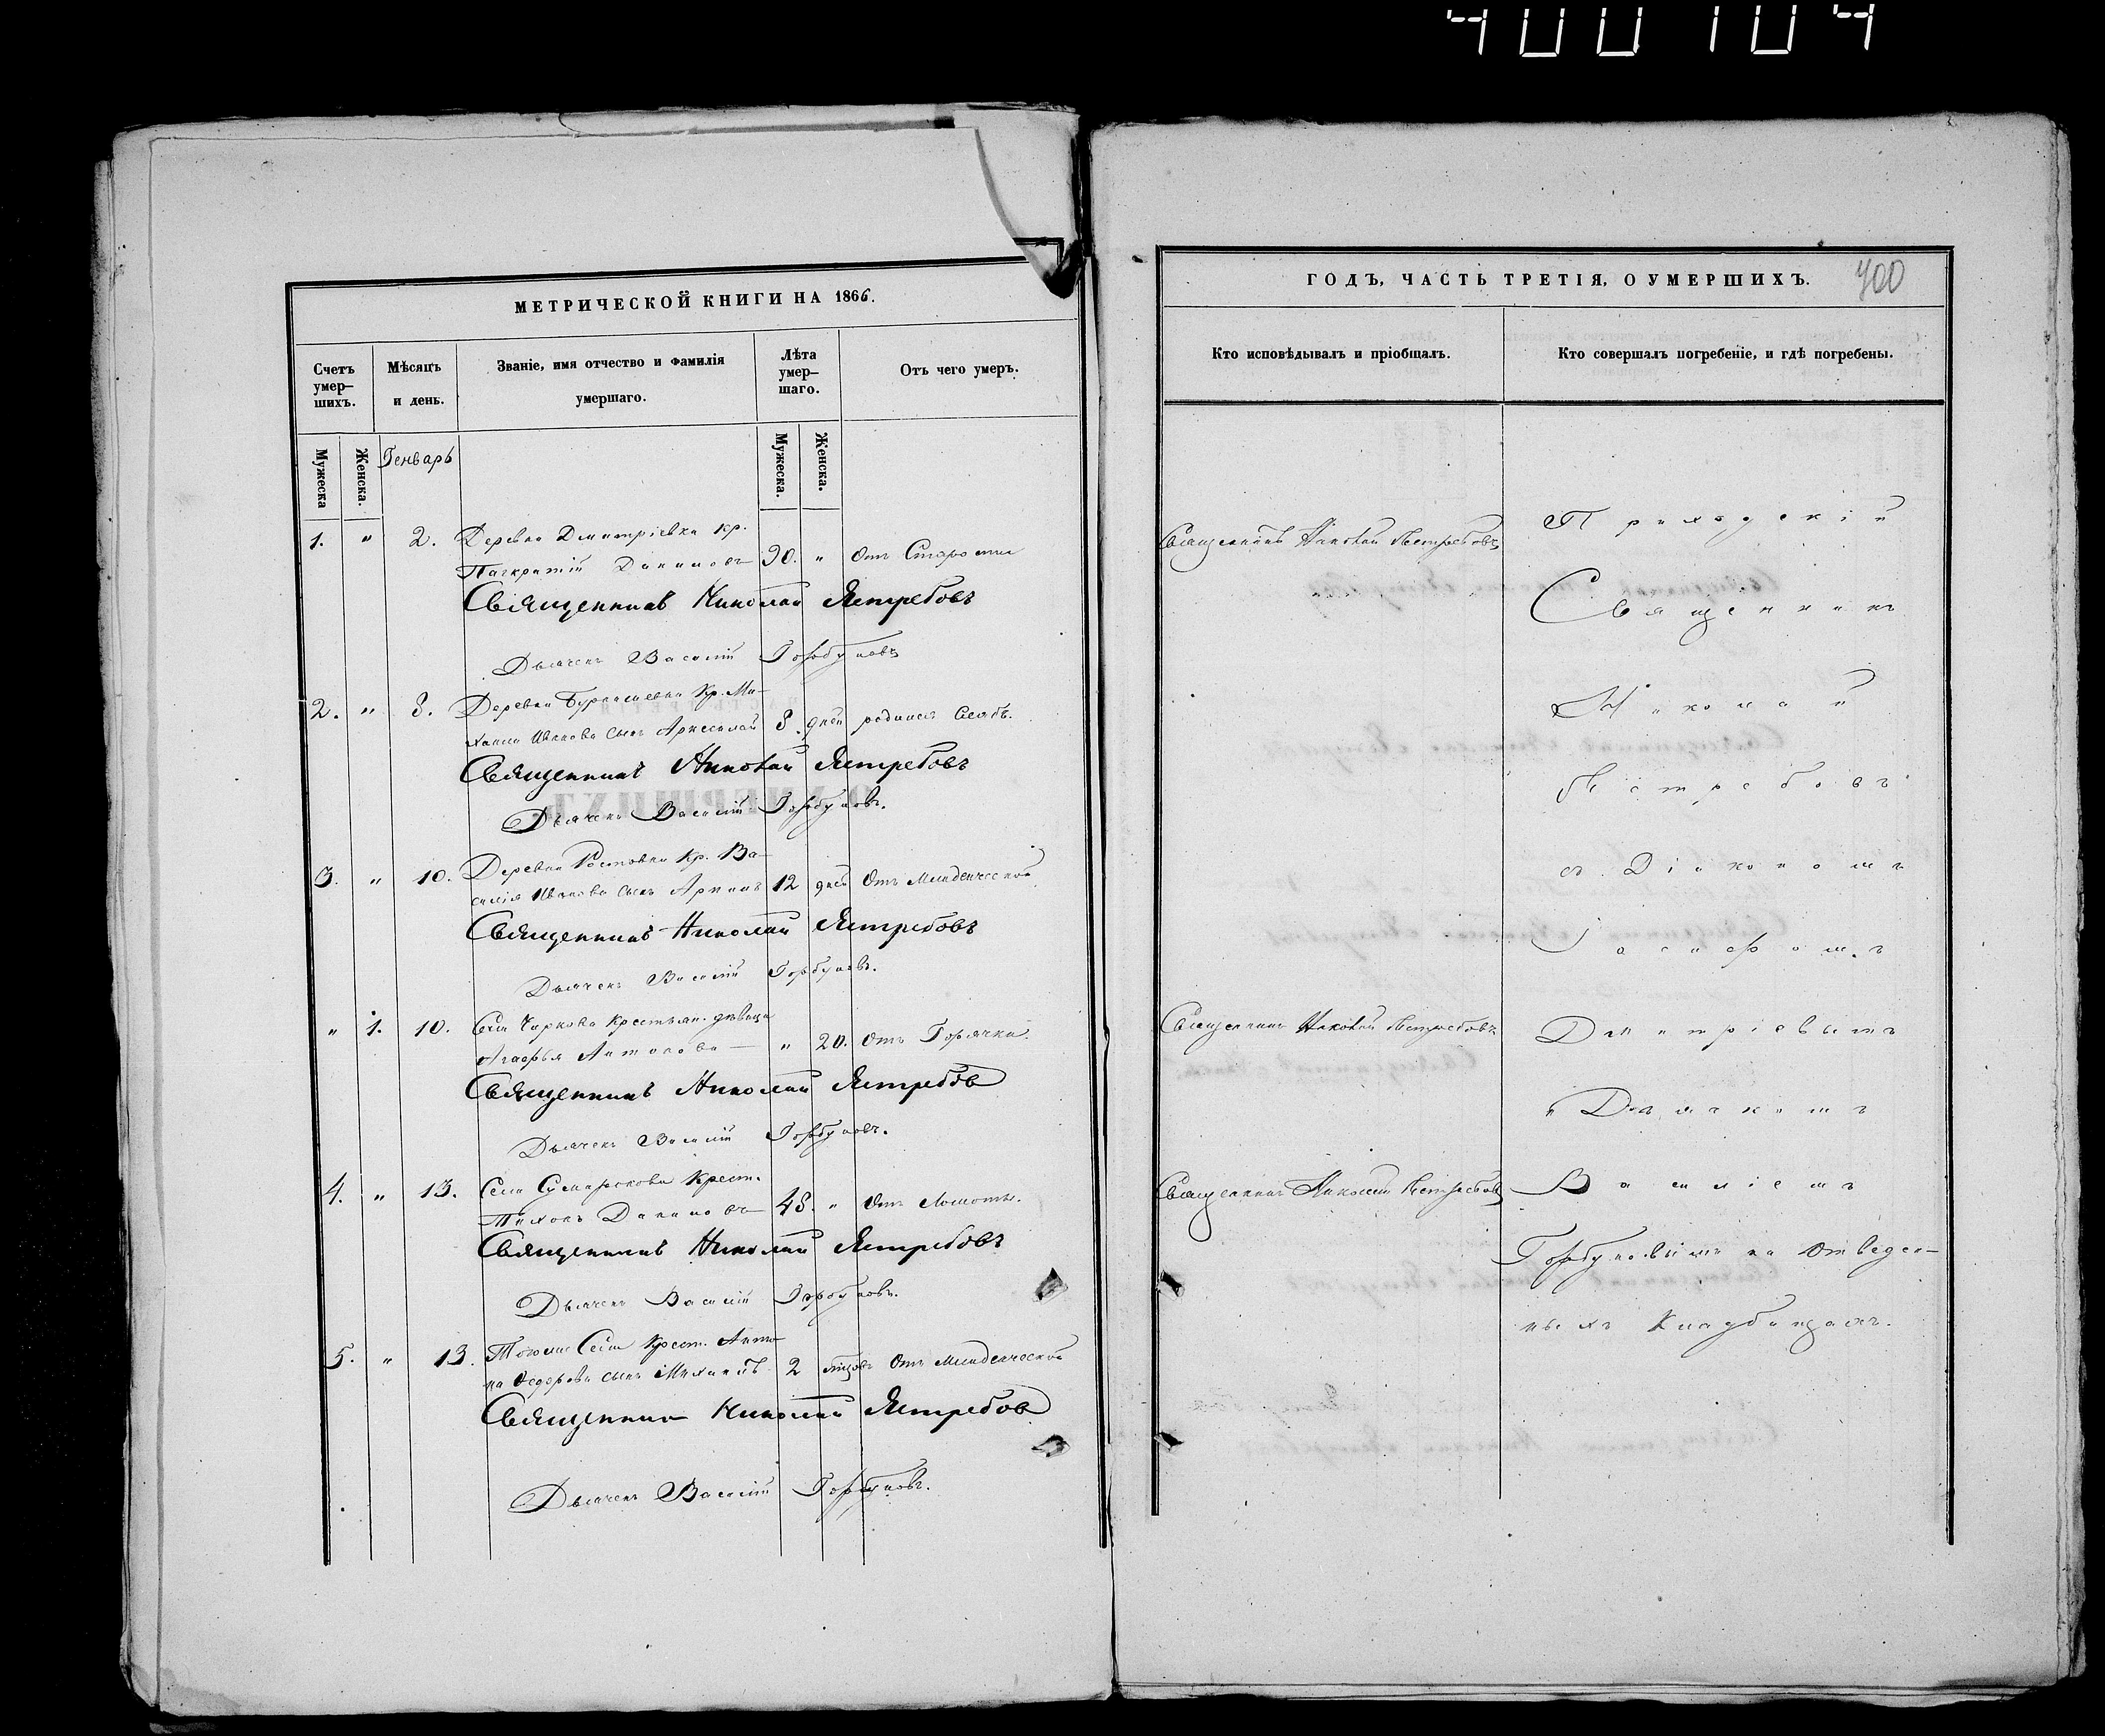 400104
МЕТРИЧЕСКОЙ КНИГИ НА 1866.
Счетъ умер-шихъ.
Мѣсяцъ и день.
Званіе, имя отчество и фамилія умершаго.
Лѣта умер-шаго.
Отъ чего умеръ.
Мужеска
Женска.
Генварь
Мужеска.
Женска.
1. " 2. Деревни Дмитріевки кр.
Панкратій Даниловъ 90. " Отъ Старости
Священникъ Николай Ястребовъ
Дьячекъ Василій Горбуновъ
2. " 8. Деревни Кр. Ми-
хаила Иванова сынъ 8 дней родился слабъ.
Священникъ Николай Ястребовъ
Дьячекъ Василій Горбуновъ.
3. " 10. Деревни Ростовки Кр. Ва-
силія Иванова сынъ 12 дней Отъ Младенческой
Священникъ Николай Ястребовъ
Дьячекъ Василій Горбуновъ.
" 1. 10. Села Чиркова Крестьян. дѣвица
Агафья Антонова " 20. Отъ Горячки.
Священникъ Николай Ястребов
Дьячекъ Василій Горбуновъ.
4. " 13. Села Сумарокова Крест.
Тихонъ Даниловъ 48. " Отъ Ломоты.
Священникъ Николай Ястребовъ
Дьячекъ Василій Горбуновъ.
5. " 13. Тогоже Села Крест. Анто-
на Федорова сынъ Михаилъ 2 мѣсяцовъ Отъ Младенческой
Священник Николай Ястребов
Дьячекъ Василій Горбуновъ.
ГОДЪ, ЧАСТЬ ТРЕТІЯ, О УМЕРШИХЪ.
400
Кто исповѣдывалъ и пріобщалъ.
Кто совершалъ погребеніе, и гдѣ погребены.
Священникъ Николай Ястребовъ
Священникъ Николай Ястребовъ
Священникъ Николай Ястребовъ
Приходскій
Священникъ
Николай
Ястребовъ
съ Діакономъ
Іасафомъ
Дмитріевымъ
и Дьячкомъ
Василіемъ
Горбуновымъ на Отведен-
ныхъ Кладбищахъ.